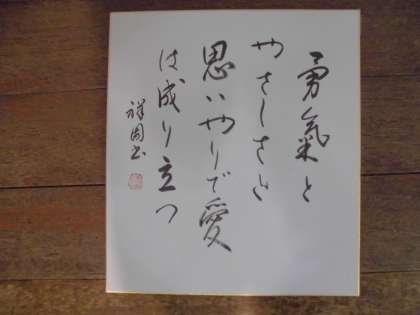 勇氣と
やさしさと
思いやりで愛
は成り立つ
祥図書